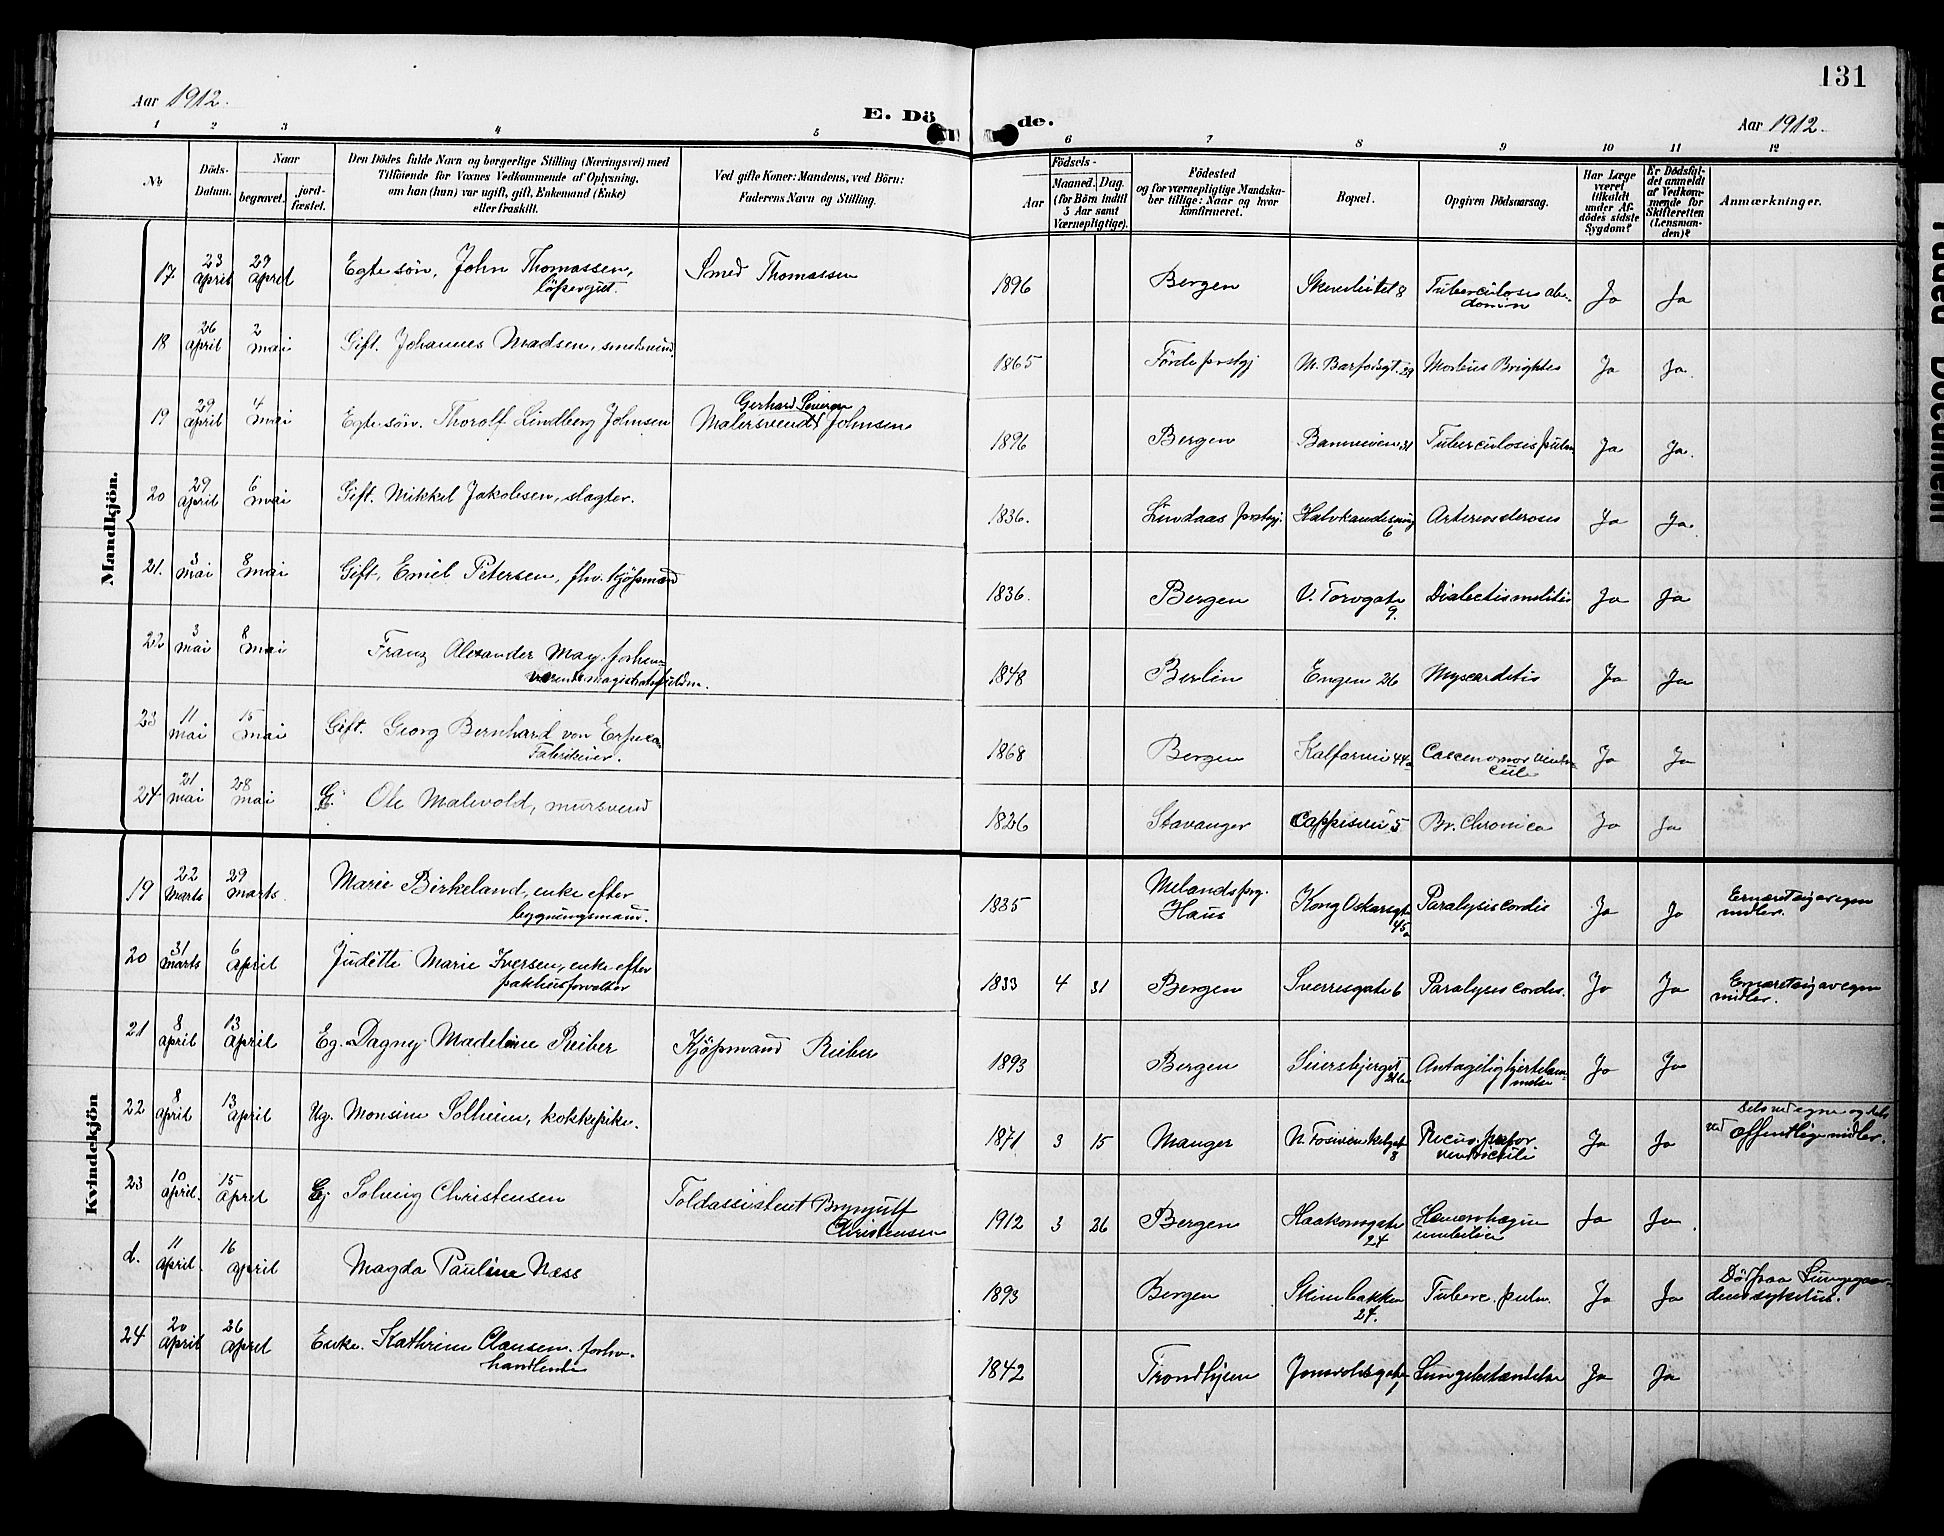 131
Aar 1912.
E. Dö de.
Aar 1912.
1 2 3 4 5 6 7 8 9 10 11 12
No
Döds-Datum.
Naar
begravet.
jord-fæstet.
Den Dödes fulde Navn og borgerlige Stilling (Næringsvei) med
Tilföiende for Voxnes Vedkommende af Oplysning,
om han (hun) var ugift, gift, Enkemand (Enke)
eller fraskilt.
Ved gifte Koner: Mandens, ved Börn:
Faderens Navn og Stilling.
Födsels-
Aar
Maaned. Dag.
(for Börn indtil
5 Aar samt
Værnepligtige).
Födested
og for værnepligtige Mandska-
ber tillige: Naar og hvor
konfirmeret.
Bopæl.
Opgiven Dödsaarsag.
Har Læge
været
tilkaldt
under Af-
dödes sidste
Sygdom?
Er Dödsfal-
det anmeldt
af Vedkom-
mende for
Skifteretten
(Lensman-
den)?
Anmærkninger.
Mandkjön.
17 23 april 29 april Egte sön, John Thomassen, löpergut. Smed Thomassen 1896 Bergen 8 Tuberculosis abdomin Ja Ja
18 26 april 2 mai Gift. Johannes Madsen, 1865 Förde prstgj M. Barfodsgt. 29 Morbus Brightes Ja Ja.
19 29 april 4 mai Egte sön. Thorolf Lindberg Johnsen Gerhard Severin Malersvend Johnsen 1896 Bergen 31 Tuberculosis pulm Ja Ja.
20 29 april 6 mai Gift. Mikkel Jakobsen, slagter. 1836. Lindaas prstgj. 6 Arteriosclerosis Ja Ja.
21. 3 mai 8 mai Gift, Emil Petersen, fhv. kjöpmand 1836. Bergen V. Torvgate 9. Diabetis melitis Ja Ja
22 3 mai 8 mai Franz Alexander May. forhen-værende 1848 Berlin Engen 26 Myocarditis Ja Ja
23 11 mai 15 mai Gift. Georg Bernhard von Erpecom Fabrikeier. 1868 Bergen Kalfarvei 44a Ja Ja
24 21 mai 28 mai Ole Malvold, mursvend 1826 Stavanger 5 Br. Chronica Ja Ja
Kvindekjön
19 22 Marts 29 marts. Marie Birkeland, enke efter bygningsmann. 1835 Melands prg. Haus Kong Oskarsgt 45a Paralysis cordis Ja Ja Ernæret sig av egne midler.
20 31 marts 6 april Juditte Marie Iversen, enke efter pakhusforvalter 1833 4 31 Bergen Sverresgate 6 Paralysis cordis. Ja Ja Ernæret sig av egne midler.
21 8 april 13 april Eg. Dagny Madeline Rieber Kjöpmand Rieber 1893 Bergen Antagelig hjertelammelse Ja Ja
22 8 april 13 april Ug. Monsine Solheim, kokkepike. 1871 3 15 Manger 8 ventriculi Ja Ja Dels ved egne og dels ved offentlige midler.
23 10 april. 15 april Eg Solveig Christensen Toldassistent Brynjulf Christensen 1912 3 26 Bergen Haakonsgate 24 Ja Ja.
d. 11 april. 16 april Magda Pauline Næss 1893 Bergen Skivebakken 24. Tuberc. pulm. Ja Ja Död paa Lungegaardens sykehus.
24 20 april 26 april Enke. Kathrine Clausen. forhv. handlende 1842 Trondhjem Jonsvoldsgate 1 Lungebetændelse Ja Ja